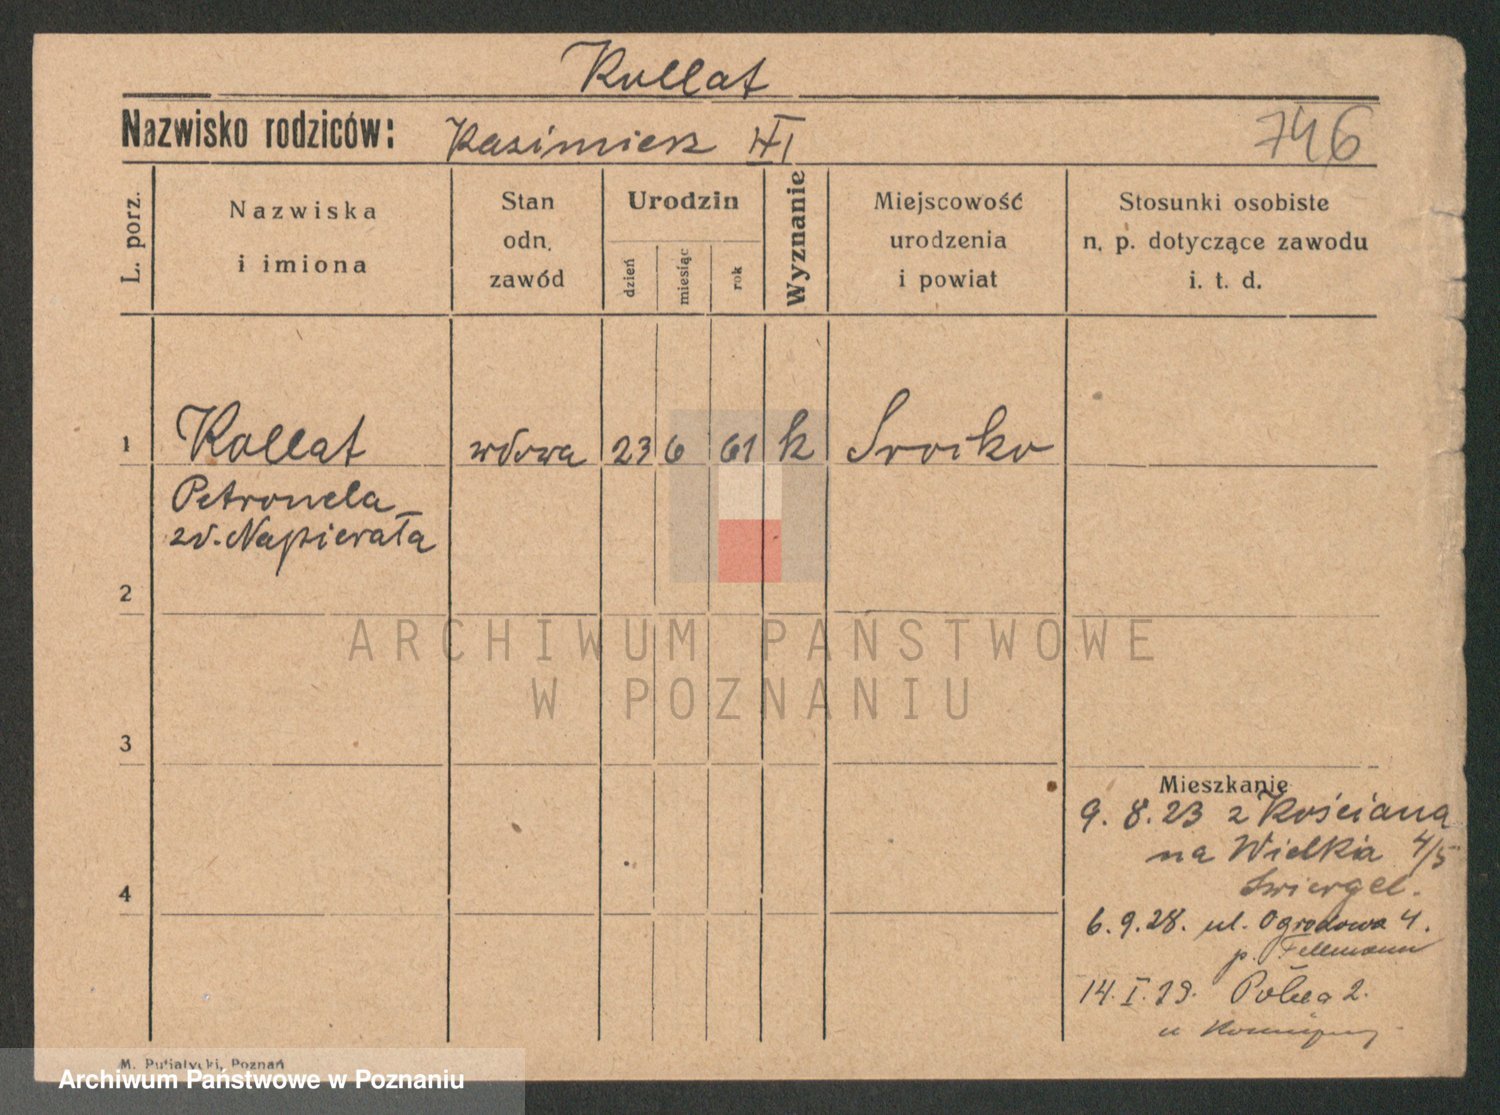 Kollat
Nazwisko rodziców: Kazimierz
746
L. porz.
Nazwiska
i imiona
Stan
odn.
zawód
Urodzin
dzień
miesiąc
rok
Wyznanie
Miejscowość
urodzenia
i powiat
Stosunki osobiste
n. p. dotyczące zawodu
i. t. d.
1 Kollat wdowa 23 6 61 k Srocko
Petronela
zd. Napierała
2
ARCHIWUM PAŃSTWOWE
W POZNANIU
3
Mieszkanie
9. 8. 23 z Kościana
na Wielkia 4/5
4
6. 9. 28. ul. Ogrodowa 4.
p. Fellmann
14. I. 29. Polna 2.
u
M. Putiatycki, Poznań
Archiwum Państwowe w Poznaniu